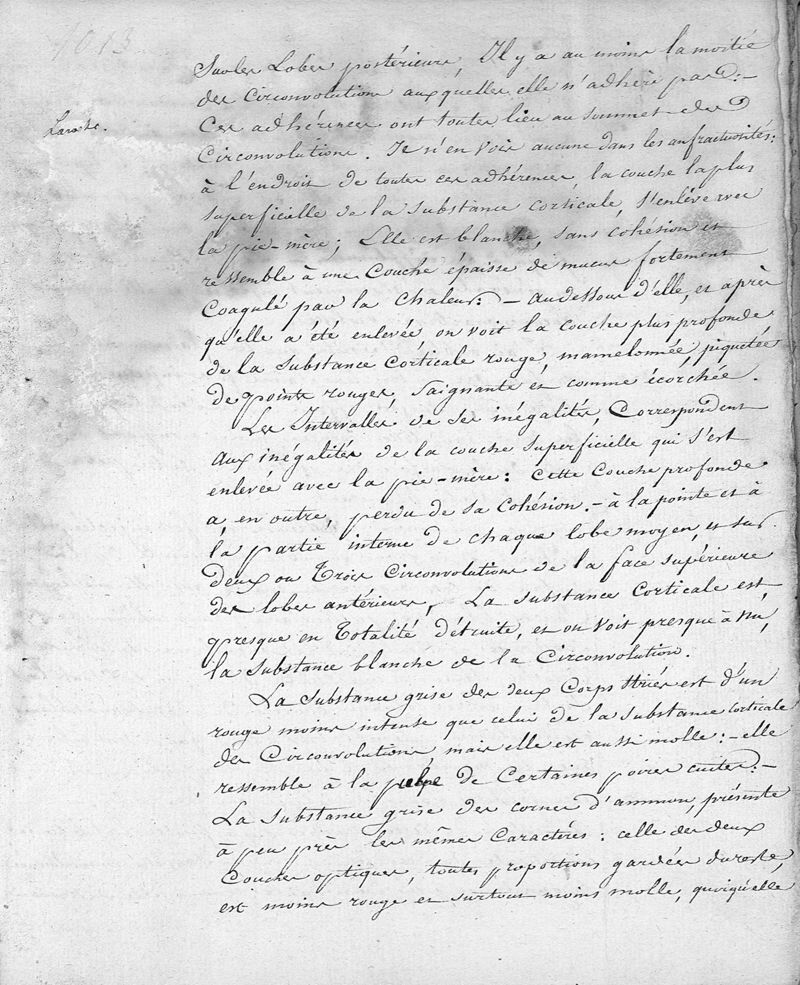 1013
Sur les Lobes postérieurs, Il y a au moins la moitié
des Circonvolutions auxquelles elle n'adhère pas :-
Laroche.
Ces adhérences ont toutes lieu au sommet des
Circonvolutions. Je n'en vois aucune dans les anfractuosités:
à l'endroit de toutes ces adhérences, la couche la plus
superficielle de la substance corticale, s'enlève avec
la pie-mère; Elle est blanche, sans cohésion et
ressemble à une Couche épaisse de mucus fortement
Coagulé par la Chaleur: - au dessous d'elle, et après
qu'elle a été enlevée, on voit la couche plus profonde
de la substance Corticale rouge, mamelonnée, piquetée
de points rouges, saignante et comme écorchée.
Les Intervalles de ses inégalités, Correspondent
aux inégalités de la couche superficielle qui s'est
enlevée avec la pie-mère: cette Couche profonde
a, en outre, perdu de sa Cohésion. - à la pointe et à
la partie interne de chaque lobe moyen, et sur
deux ou Trois Circonvolutions de la face supérieure
des lobes antérieurs, La substance Corticale est,
presque en Totalité détruite, et on voit presque à nu,
la substance blanche de la Circonvolution.
La Substance grise des deux Corps striés est d'un
rouge moins intense que celui de la substance corticale
des Circonvolutions, mais elle est aussi molle : - elle
ressemble à la pulpe de Certaines poires cuites : -
La Substance grise des cornes d'ammon, présente
à peu près les mêmes Caractères : celle des deux
Couches optiques, toutes proportions gardées du reste,
est moins rouge et surtout moins molle, quoiqu'elle